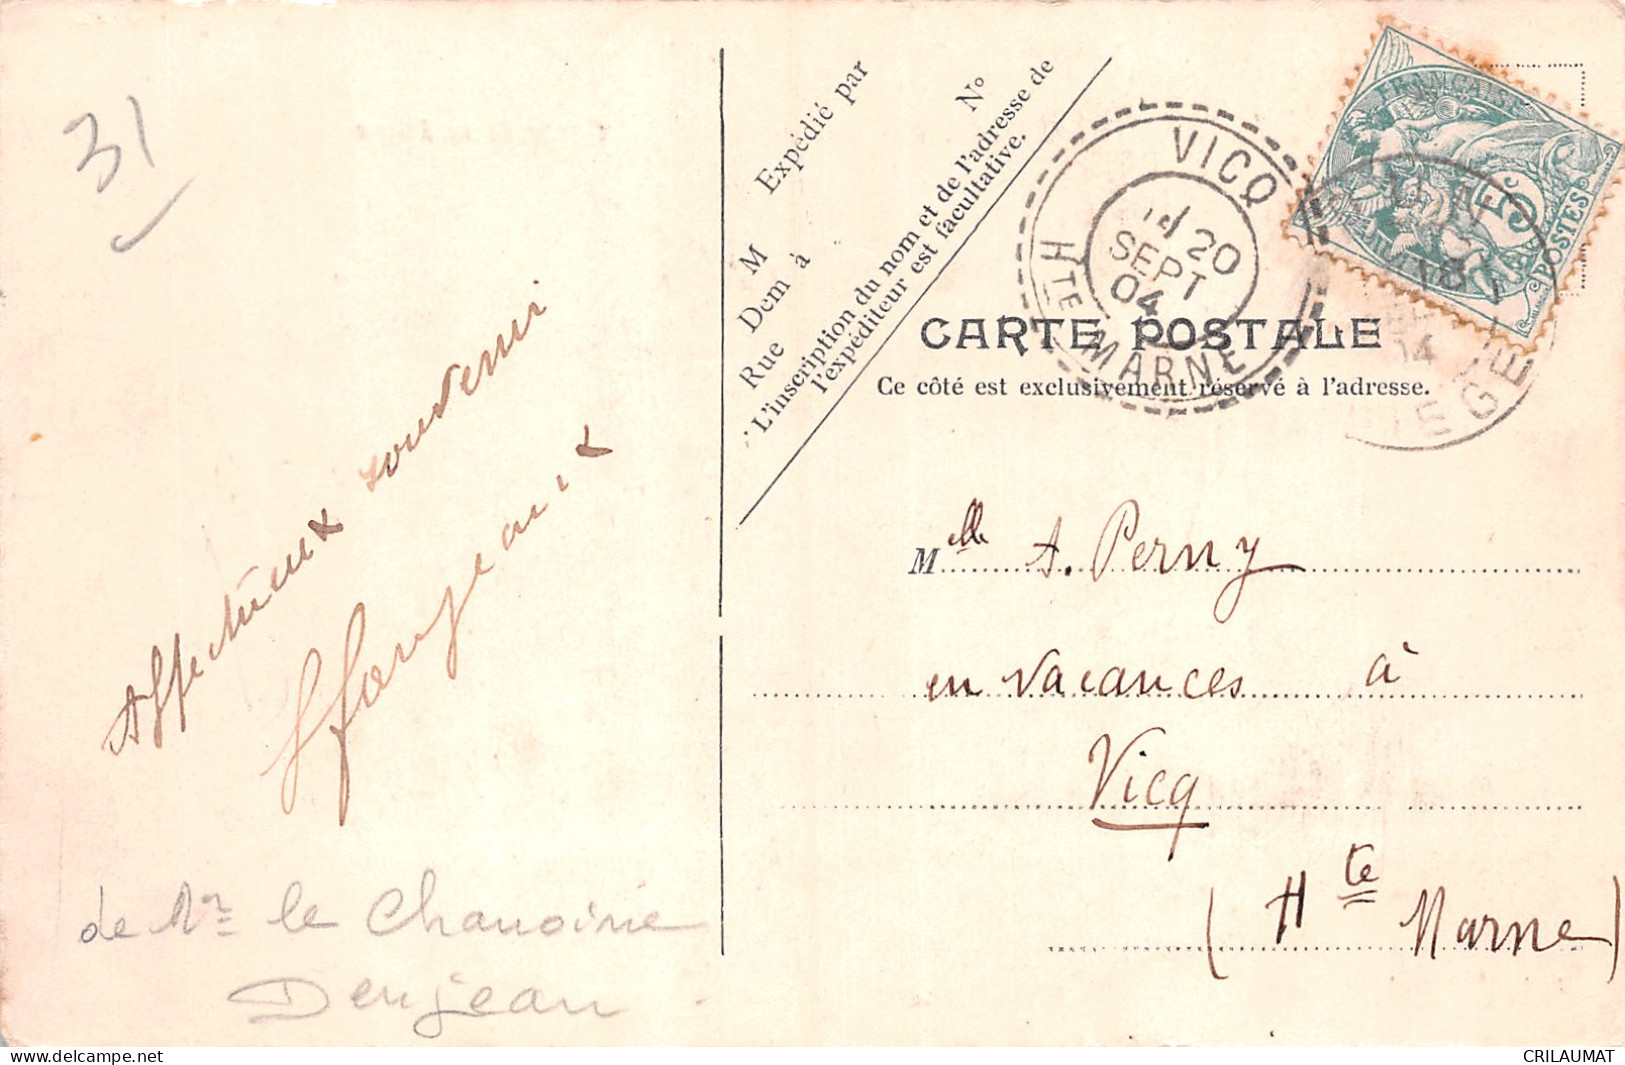 31
Affectueux souvenir
de Mr le Chanoine
Denjean
Expédié par
M
N°
Dem à
Rue
L'inscription du nom et de l'adresse de
l'expéditeur est facultative.
FRANÇAISE
5c
POSTES
VICQ
20
SEPT
04
Hte MARNE
CARTE POSTALE
Ce côté est exclusivement réservé à l'adresse.
Melle A. Perny
en vacances à
Vicq
(Hte Marne)
CRILAUMAT